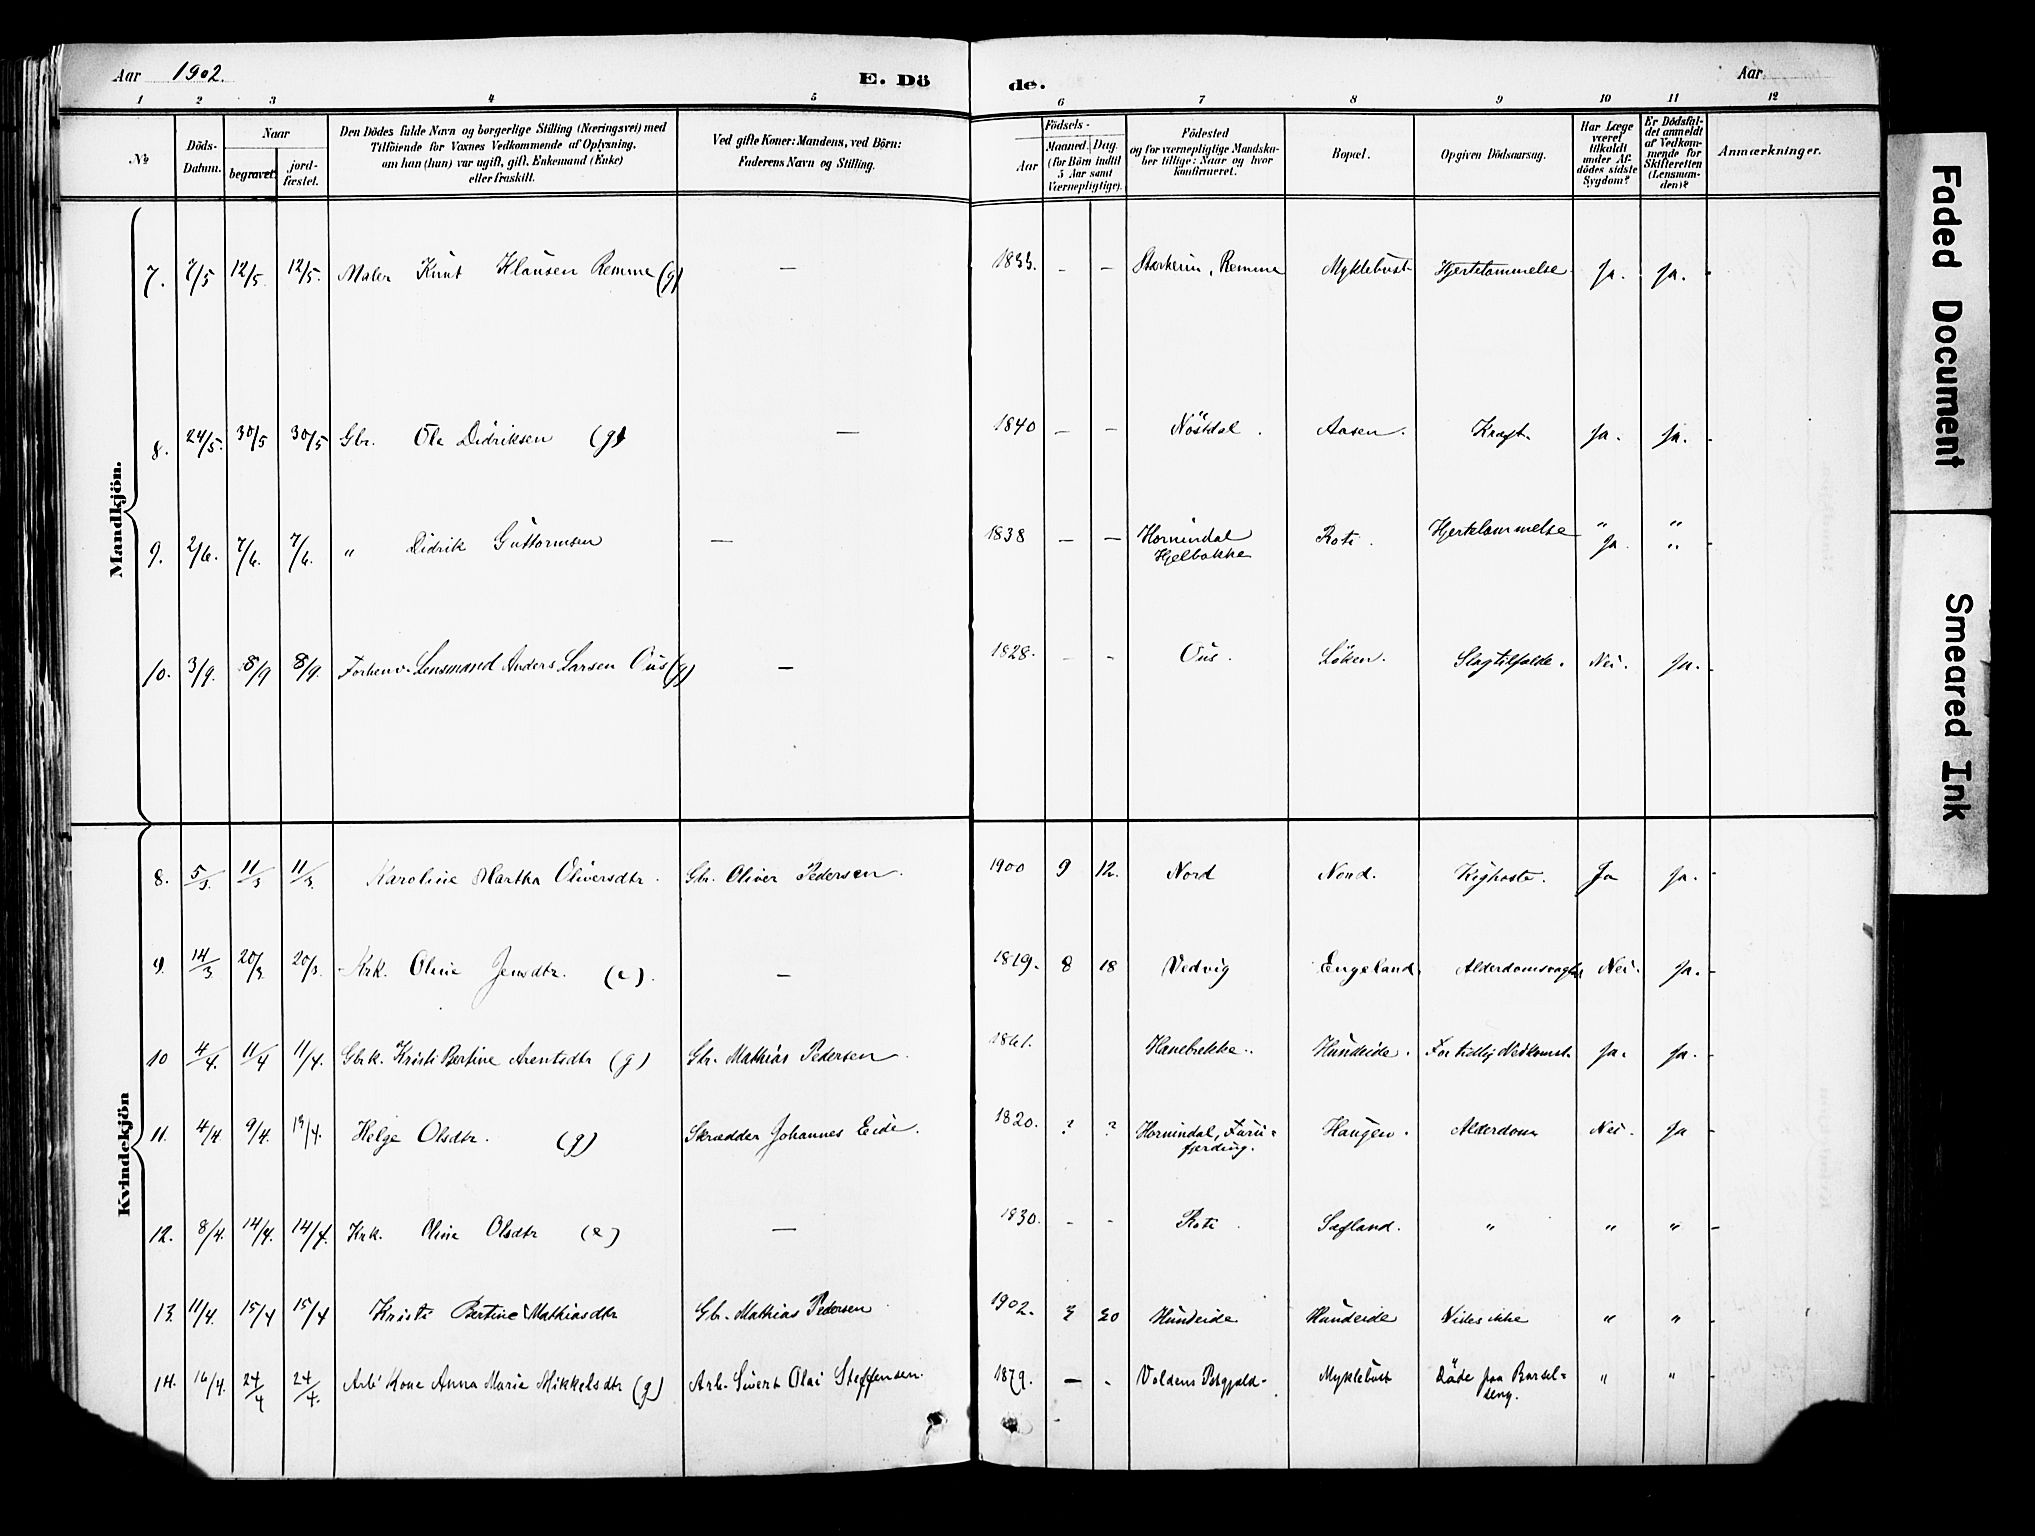 Aar 1902.
E. Dö
de.
Aar
1 2 3 4 5 6 7 8 9 10 11 12
No
Döds-Datum.
Naar
begravet.
jord-fæstet.
Den Dödes fulde Navn og borgerlige Stilling (Næringsvei) med
Tilföiende for Voxnes Vedkommende af Oplysning,
om han (hun) var ugift, gift, Enkemand (Enke)
eller fraskilt.
Ved gifte Koner: Mandens, ved Börn:
Faderens Navn og Stilling.
Födsels-
Aar
Maaned.
Dag.
(for Börn indtil
5 Aar samt
Værnepligtige).
Födested
og for værnepligtige Mandska-
ber tillige: Naar og hvor
konfirmeret.
Bopæl.
Opgiven Dödsaarsag.
Har Læge
været
tilkaldt
under Af-
dödes sidste
Sygdom?
Er Dödsfal-
det anmeldt
af Vedkom-
mende for
Skifteretten
(Lensman-
den)?
Anmærkninger.
Mandkjön.
7. 7/5 12/5. 12/5. Maler Knut Klausen Remme (g) — 1833. - - Starheim, Remme Myklebust Hjertelammelse Ja. Ja. -
8. 24/5. 30/5 30/5 Gbr. Ola Didriksen (g) — 1840 - - Nöstdal. Aasen. Kræft. Ja. Ja. -
9. 2/6. 7/6. 7/6. " Didrik Guttormsen — 1838 - - Hornindal Hjelbakke Rote. Hjertelammelse " Ja. " " -
10. 3/9. 8/9 8/9. Forhenv. Lensmand Anders Larsen Ous (g) — 1828. - - Ous. Löken. Slagtilfælde. Nei. Ja. -
Kvindekjön
8. 5/3. 11/3 11/3. Karoline Martha Oliversdtr. Gbr. Oliver Pedersen. 1900 9 12. Nord Nord. Kighoste. Ja Ja. -
9. 14/3 20/3. 20/3. Krk. Oline Jensdtr. (e). — 1819. 8 18 Vedvig Engeland. Alderdomsvaghed Nei. Ja. -
10 4/4. 11/4 11/4. Gbrk. Kristi Bertine Arentsdtr (g) Gbr. Mathias Pedersen. 1861. Hanebrekke. Hundeide. For tidlig Nedkomst. Ja. Ja. -
11. 4/4. 9/4. 19/4. Helge Olsdtr. (g) Skrædder Johannes Eide. 1820. ? ? Hornindal, Furu=
fjerding. Haugen. Alderdom Nei. Ja
12. 8/4. 14/4. 14/4. Krk. Oline Olsdtr (e) — 1830. - - Rote. Sætland. " " " -
13. 11/4. 15/4 15/4 Kristi Bertine Mathiasdtr Gbr. Mathias Pedersen 1902. 3 20 Hundeide Hundeide Vides ikke " " -
14. 16/4. 24/4 24/4. Arb. Kone Anna Marie Mikkelsdtr (g) Arb. Sivert Olai Steffensen. 1879. - - Voldens Prstgjæld. Myklebust Döde paa Barsel=
seng. " " -
Faded Document
Smeared Ink